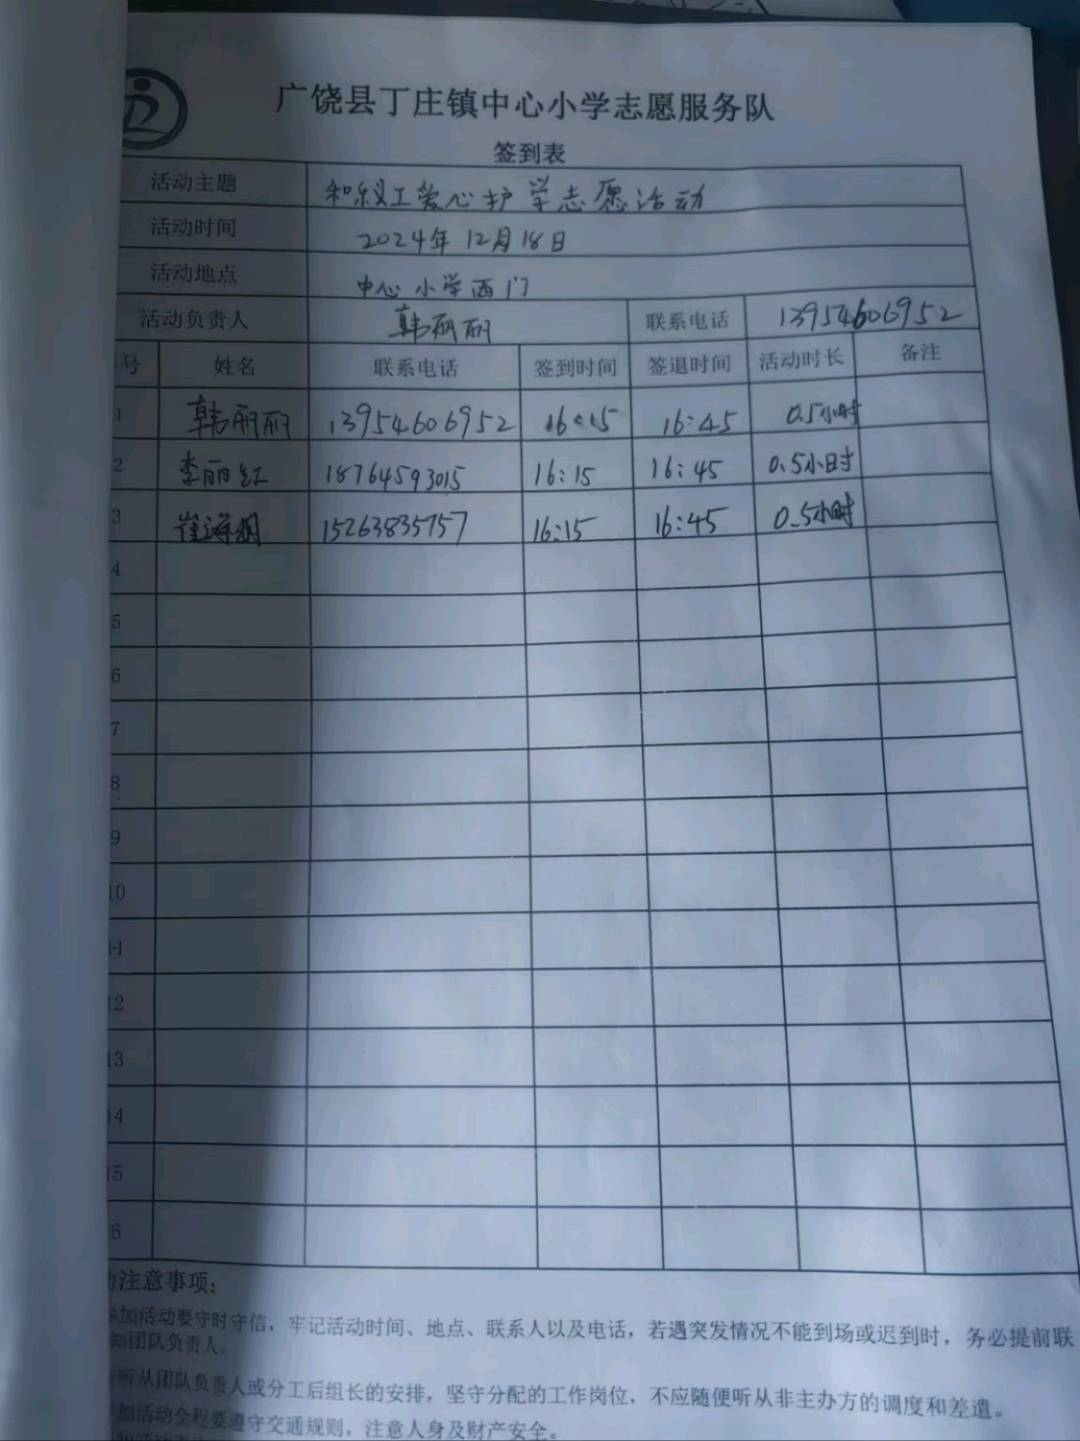 广饶县丁庄镇中心小学志愿服务队
签到表
活动主题 和义工爱心护学志愿活动
活动时间 2024年12月18日
活动地点 中心小学西门
活动负责人 韩丽丽 联系电话 13954606952
号 姓名 联系电话 签到时间 签退时间 活动时长 备注
1 韩丽丽 13954606952 16:15 16:45 0.5小时
2 李丽红 18764593015 16:15 16:45 0.5小时
3 崔海娟 15263835757 16:15 16:45 0.5小时
4
5
6
7
8
9
10
11
12
13
14
15
6
注意事项：
参加活动要守时守信，牢记活动时间、地点、联系人以及电话，若遇突发情况不能到场或迟到时，务必提前联
团队负责人。
听从团队负责人或分工后组长的安排，坚守分配的工作岗位，不应随便听从非主办方的调度和差遣。
加活动全程要遵守交通规则，注意人身及财产安全。